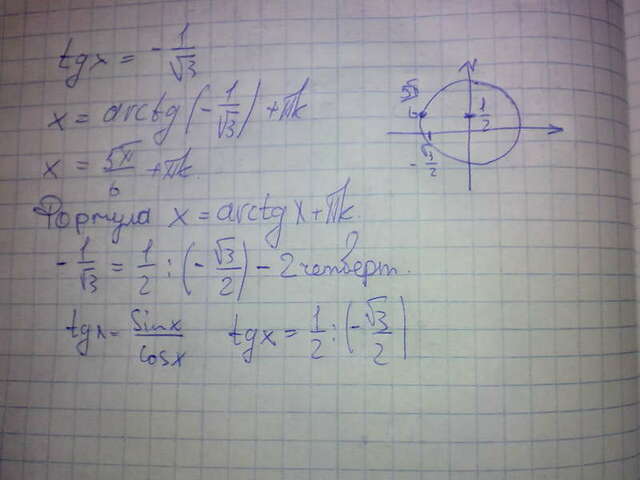 tgx = - 1/√3
x = arctg(- 1/√3) + πk
x = 5π/6 + πk.
Формула x = arctg x + πk.
- 1/√3 = 1/2 : (- √3/2) - 2 четверт.
tgx = sinx/cosx tgx = 1/2 : (- √3/2)
5π/6
1/2
- √3/2